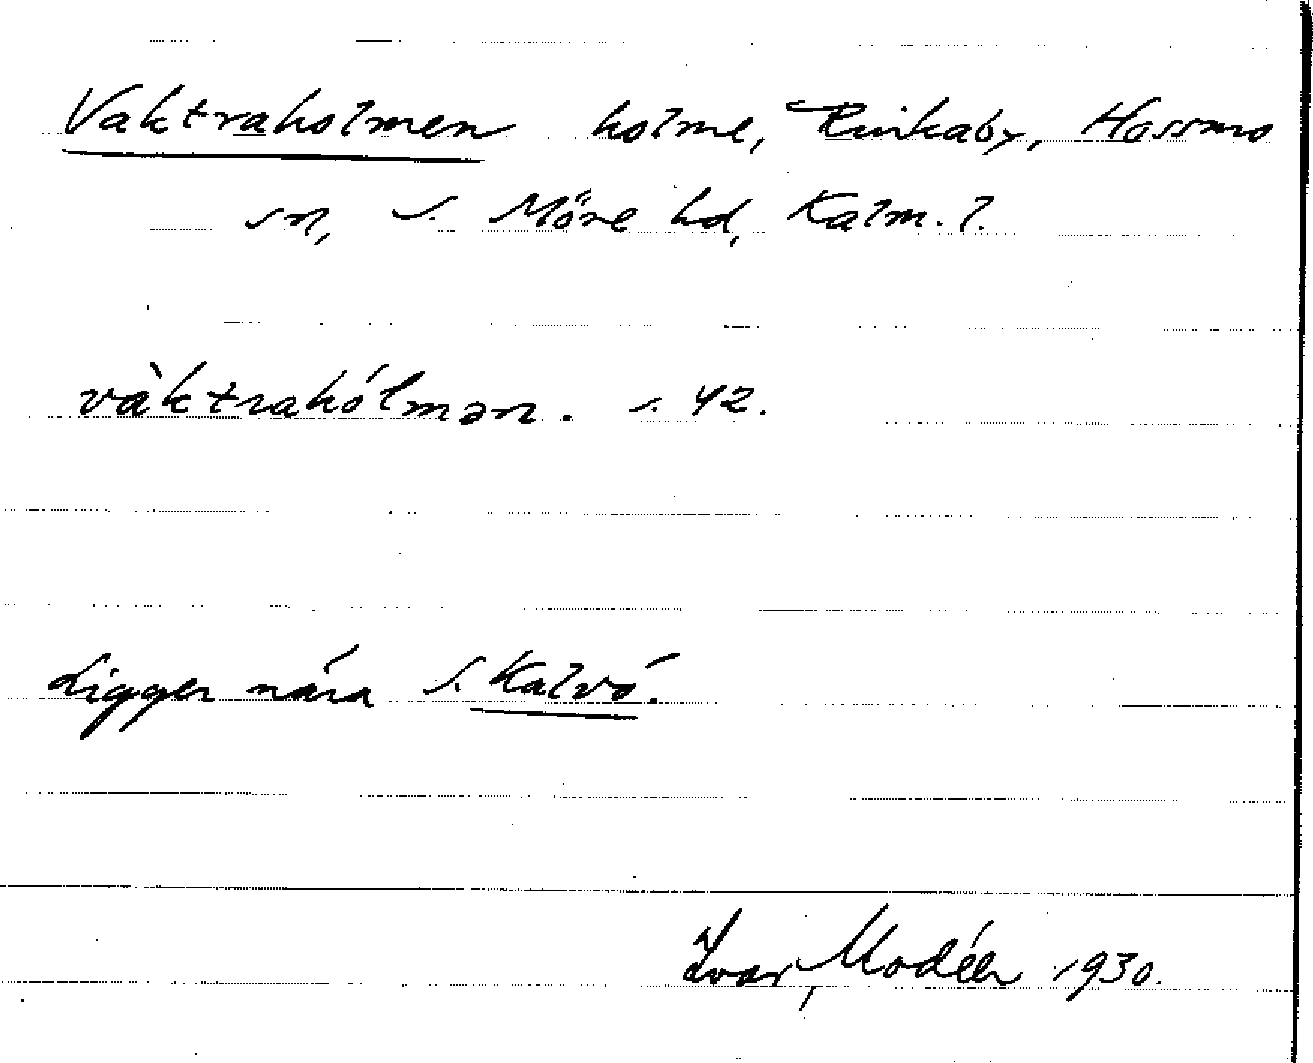 Vaktraholmen holme, Rinkaby, Hossmo
sn, S. Möre hd, Kalm. l.
vàktrahólmən. s. 42.
Ligger nära S. Kalvö.
Ivar Modéer 1930.